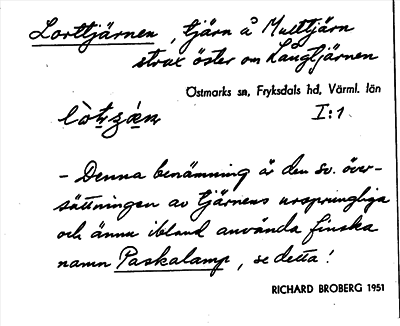 Lorttjärnen, tjärn å Multtjärn
strax öster om Långtjärnen
Östmarks sn, Fryksdals hd, Värml. län
I:1
– Denna benämning är den sv. över-
sättningen av tjärnens ursprungliga
och ännu ibland använda finska
namn Paskalamp, se detta!
RICHARD BROBERG 1951